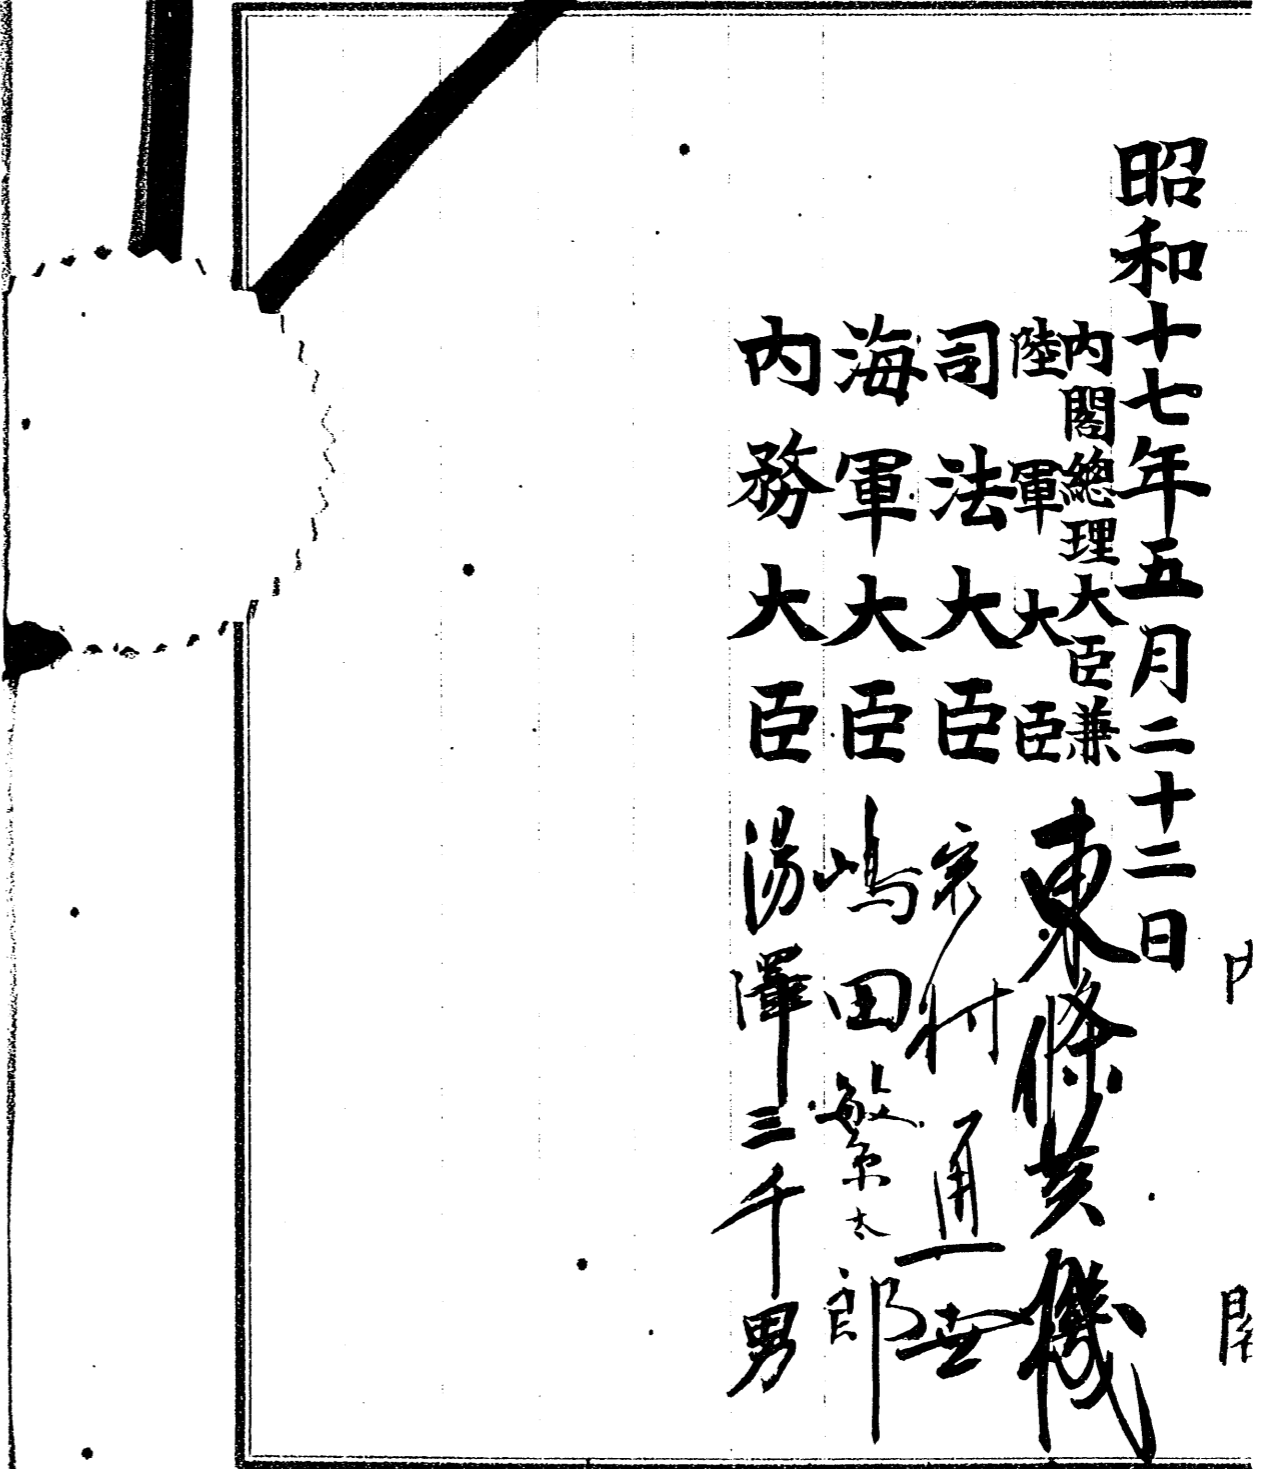 昭和十七年五月二十二日
內閣總理大臣兼
陸軍大臣 東條英機
司法大臣 岩村通世
海軍大臣 嶋田繁太郎
內務大臣 湯澤三千男
內
閣